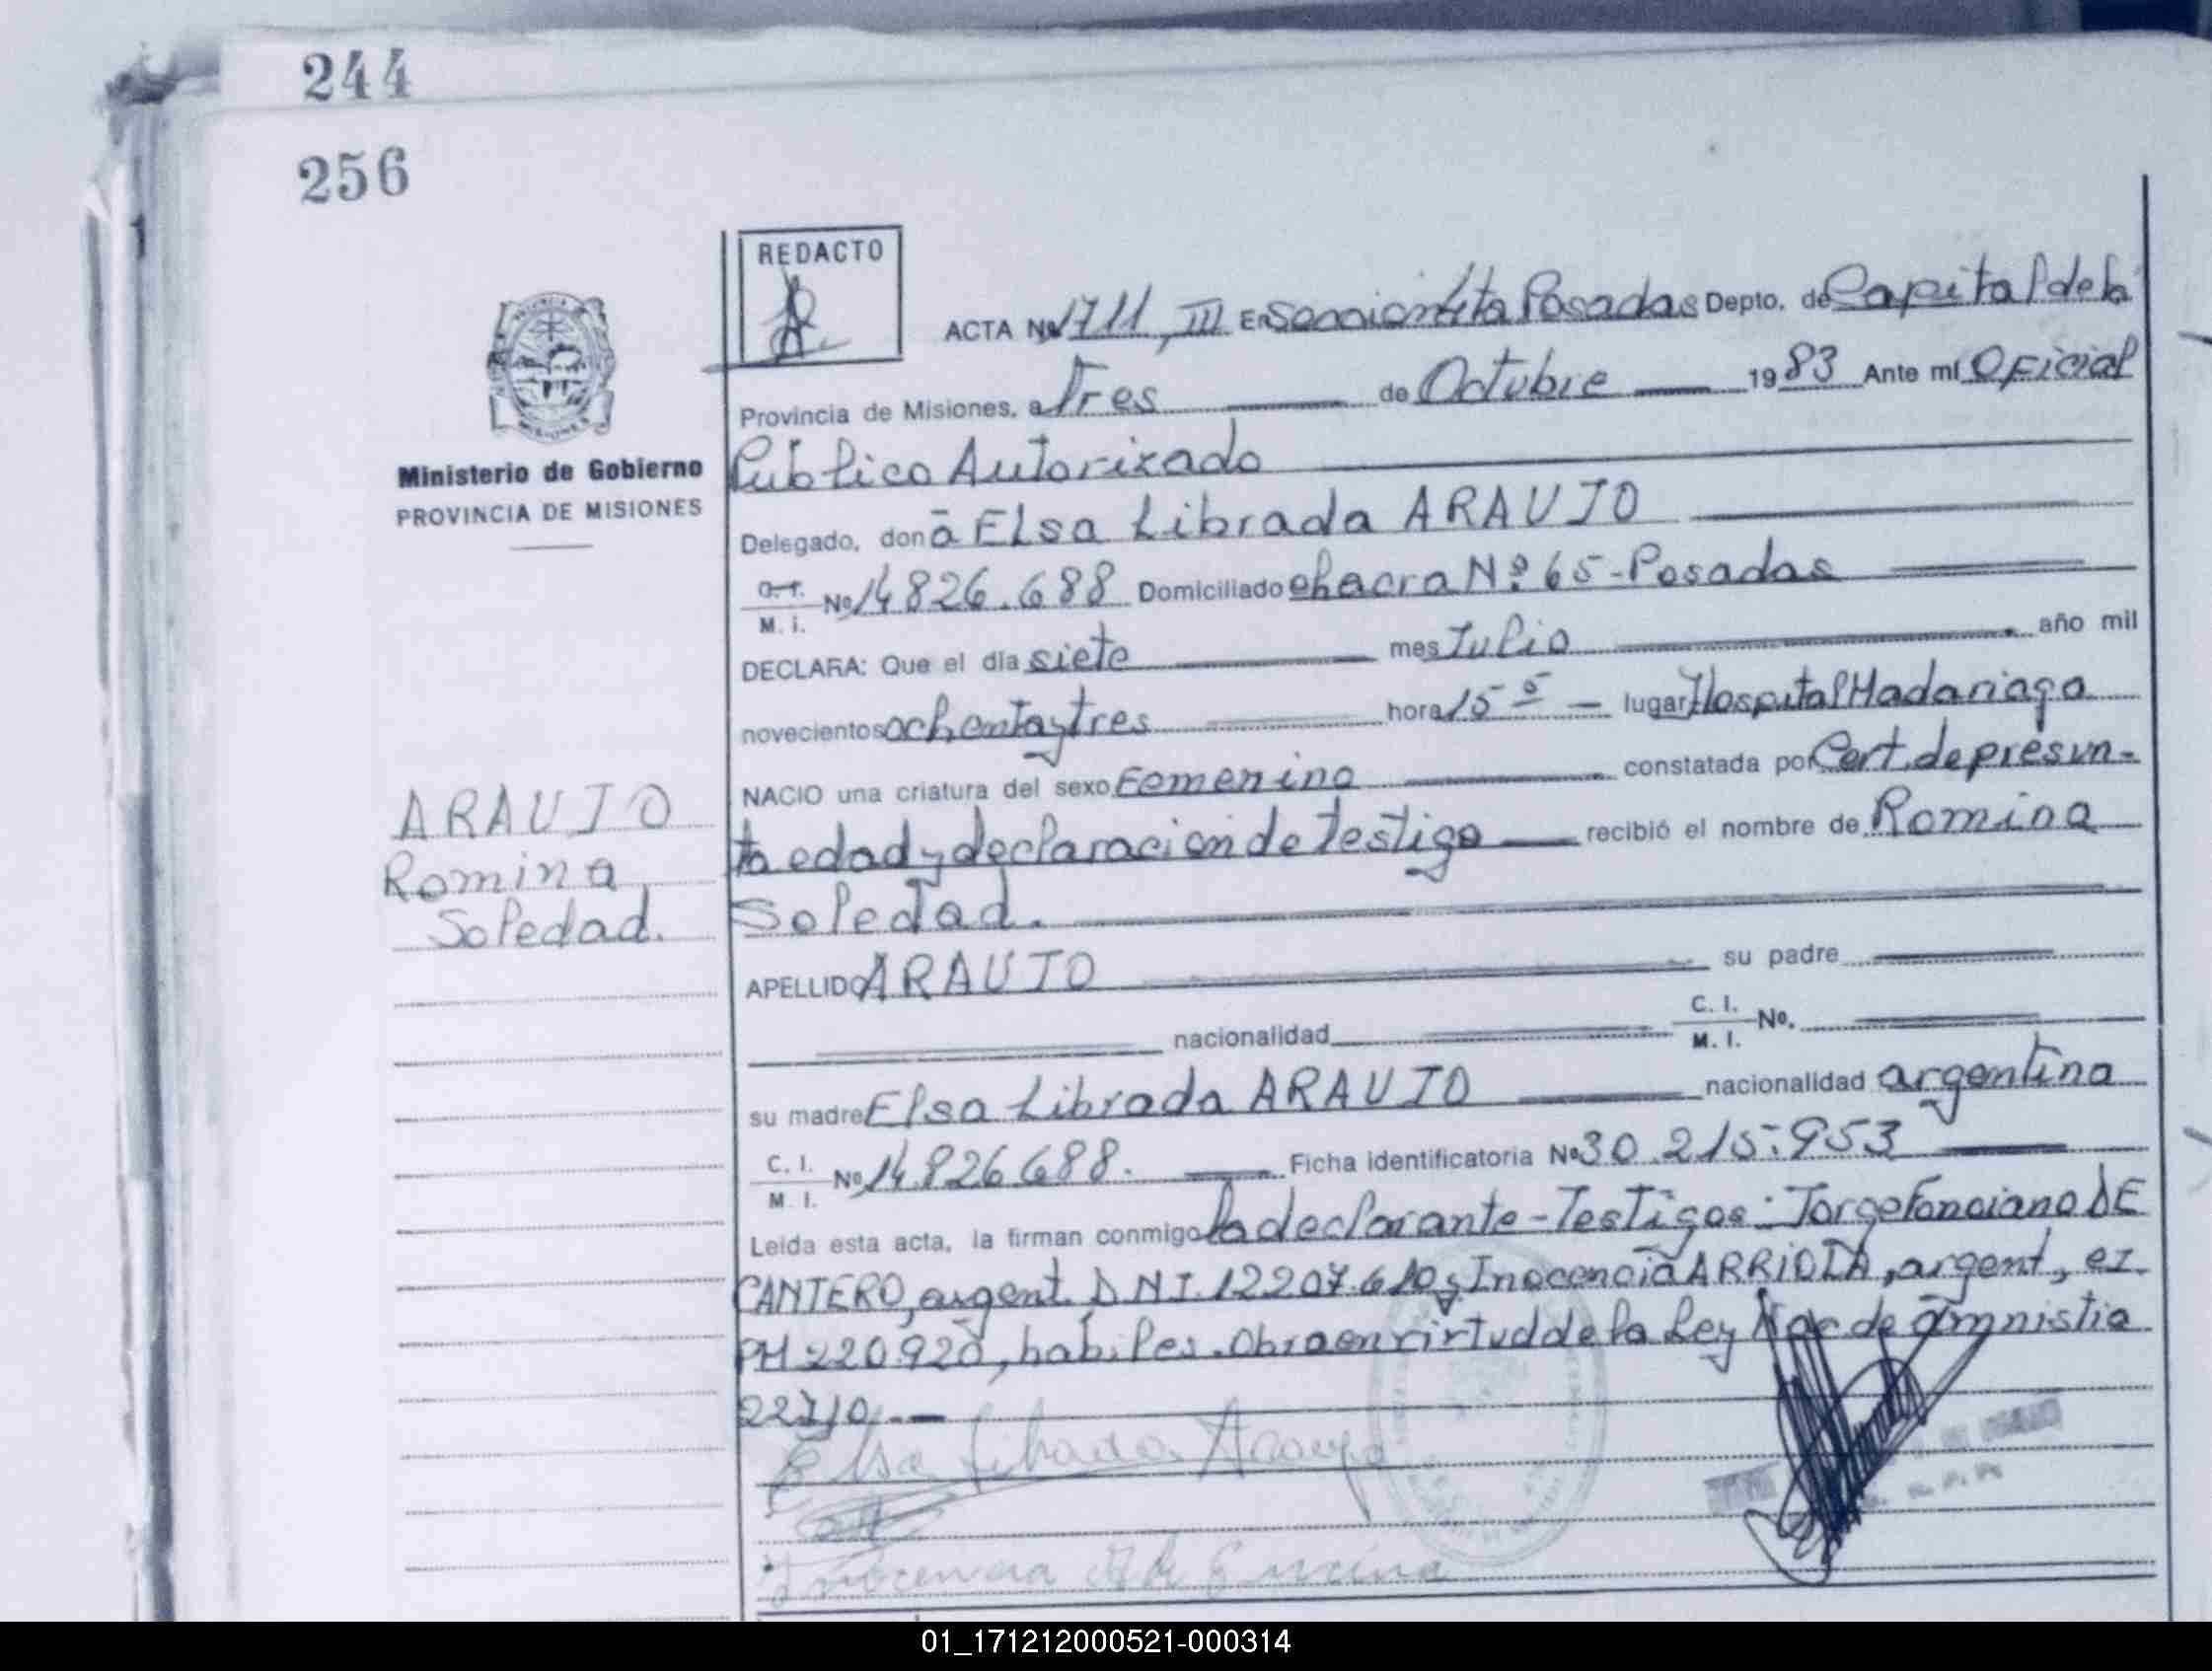 244
256
REDACTO
ACTA Nº 1711, III En Sección 4ta Posadas Depto. de Capital de la
Provincia de Misiones, a Tres de Octubre 1983 Ante mí Oficial
Público Autorizado
Ministerio de Gobierno
PROVINCIA DE MISIONES
Delegado, don a Elsa Librada ARAUJO
C. I. M. I. Nº 14826.688 Domiciliado chacra Nº 65-Posadas
DECLARA: Que el día siete mes Julio año mil
novecientos ochenta y tres hora 15 5 lugar Hospital Madariaga
NACIO una criatura del sexo Femenino constatada por Cert. de presun-
ta edad y declaracion de testigo recibió el nombre de Romina
Soledad.
ARAUJO
Romina
Soledad.
APELLIDO ARAUJO su padre
nacionalidad C. I. M. I. No.
su madre Elsa Librada ARAUJO nacionalidad argentina
C. I. M. I. Nº 14.826.688. Ficha identificatoria Nº 30.215.953
Leída esta acta, la firman conmigo la declarante-Testigos: Jorge DE
CANTERO, argent. DNI. 12207.610 y Inocencia ARRIOLA, argent,
220.920, habiles. Obra en virtud de la Ley Nac de amnistia
Elsa Librada Araujo
Inocencia A de
01_171212000521-000314